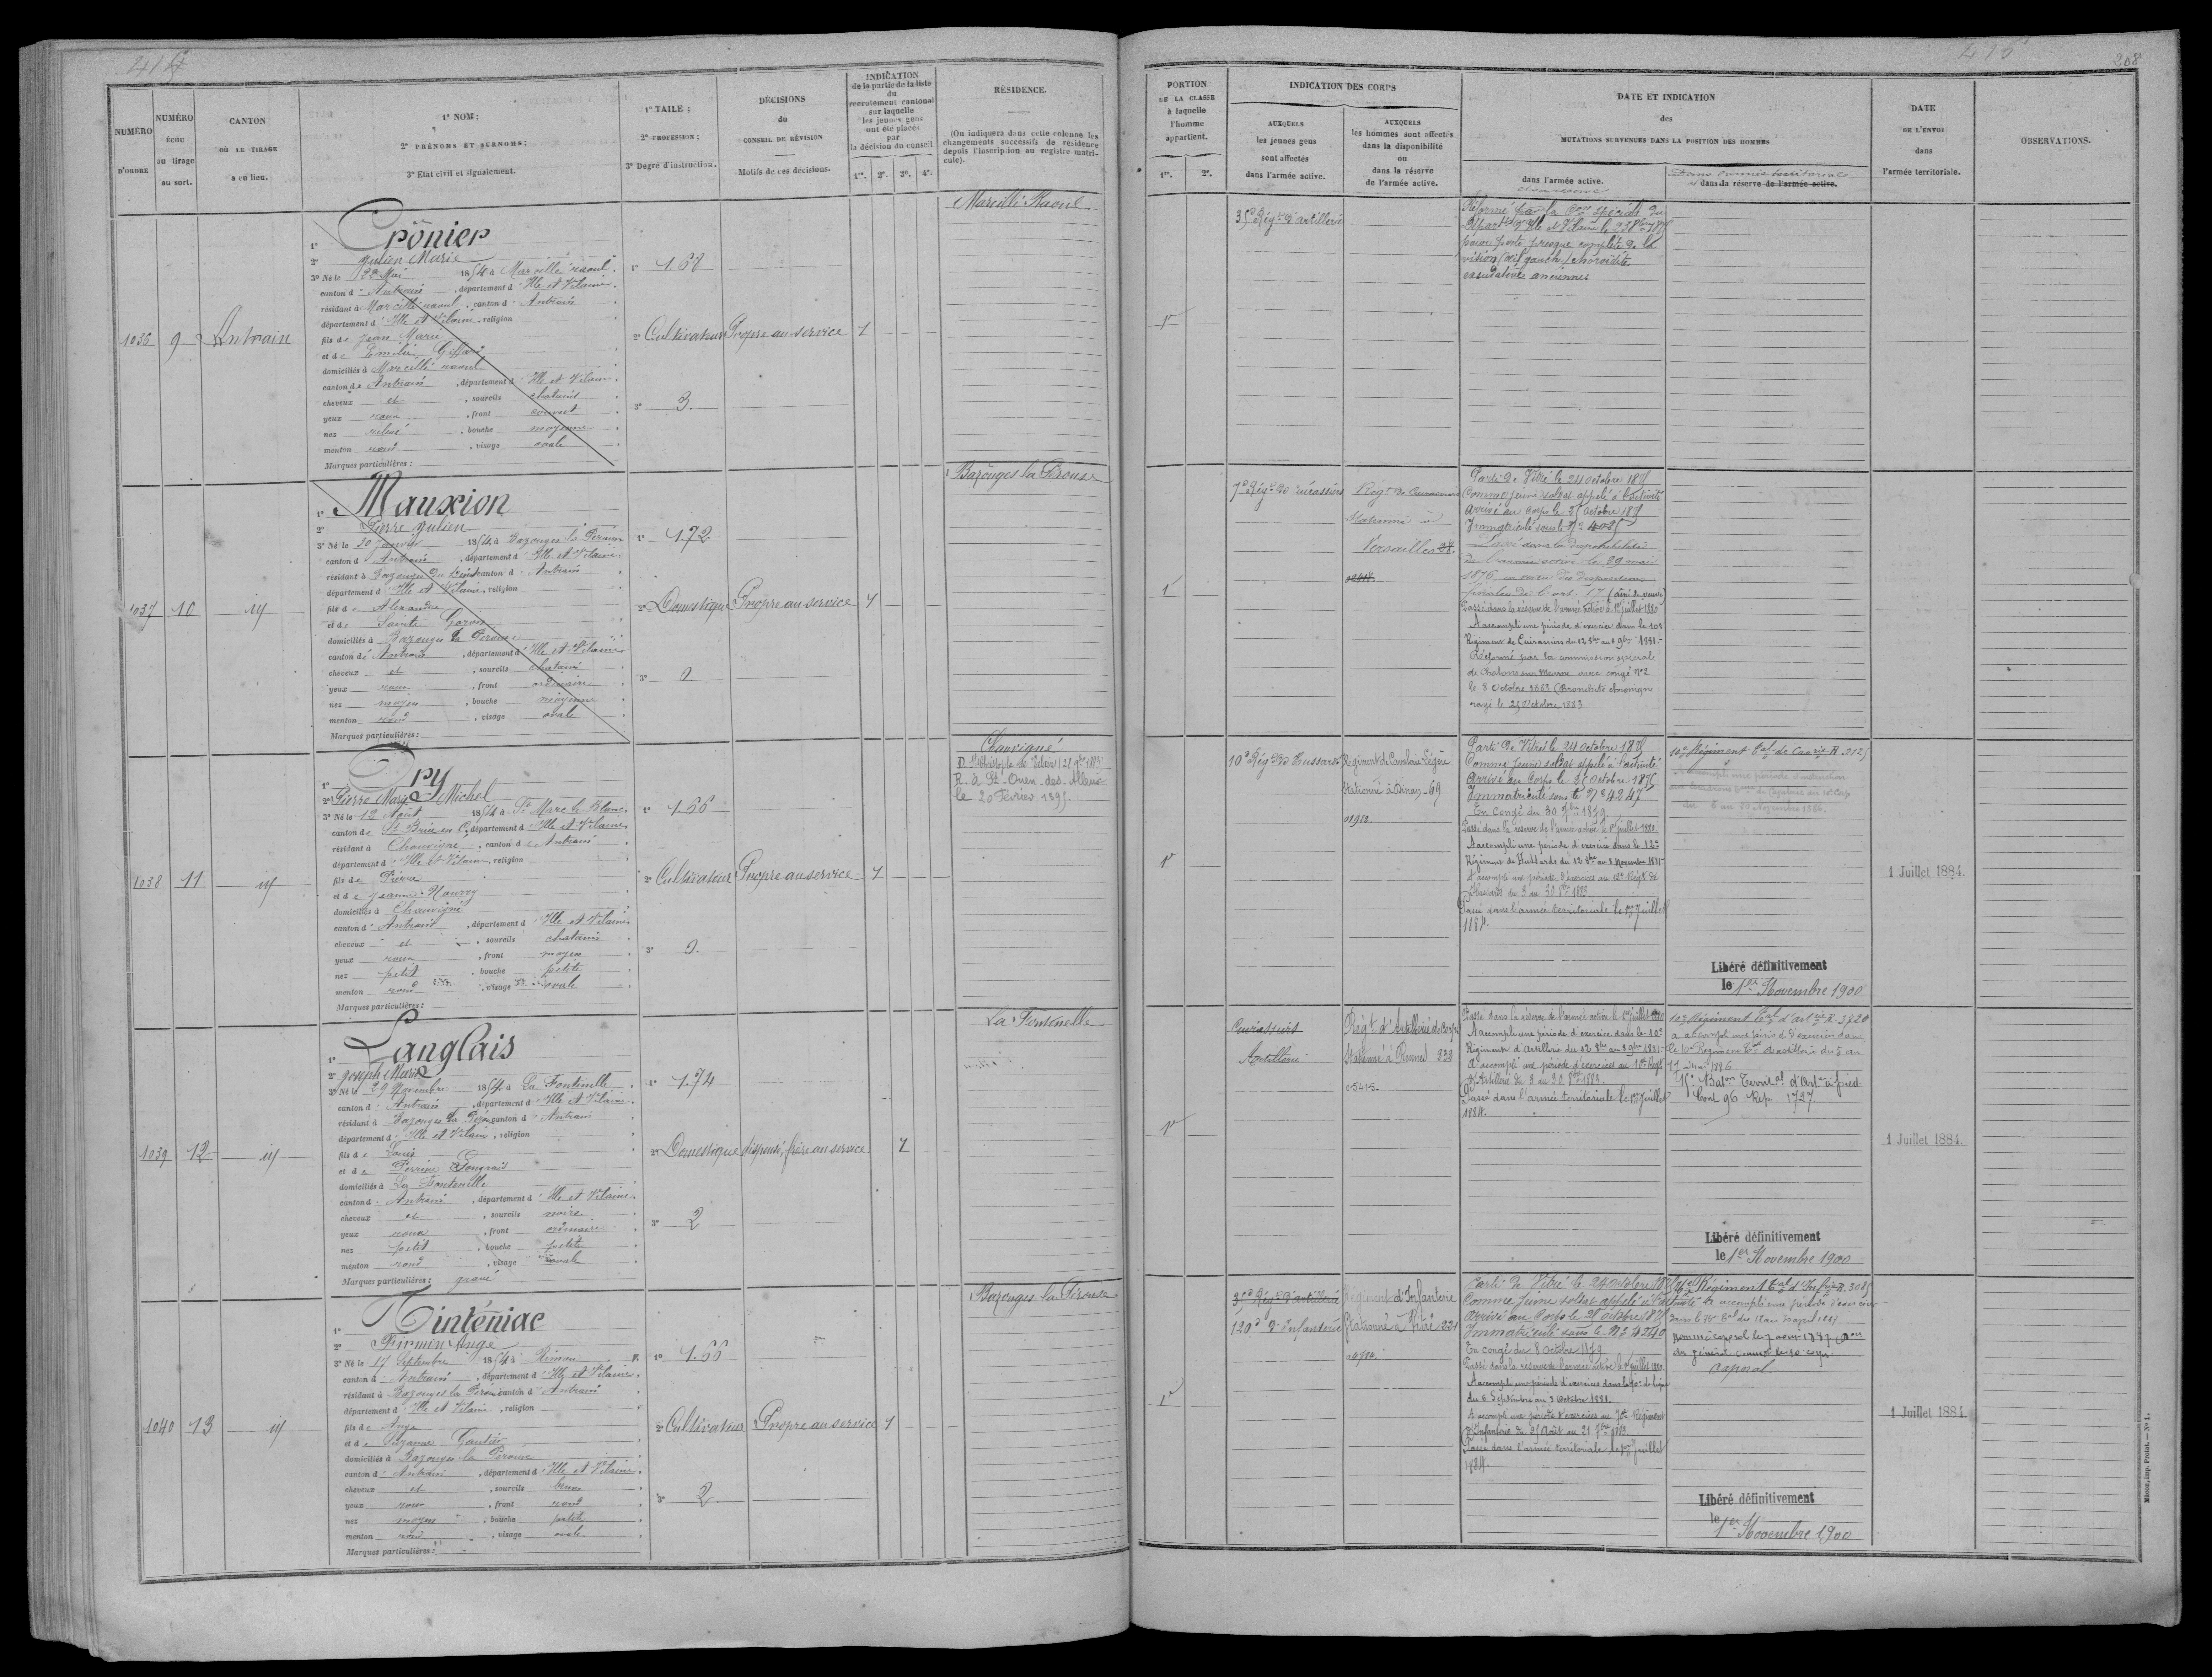 414
NUMÉRO
D'ORDRE
NUMÉRO
ÉCHU
au tirage
au sort.
CANTON
OÙ LE TIRAGE
a eu lieu.
1° NOM;
2° PRÉNOMS ET SURNOMS;
3° Etat civil et signalement.
1° TAILLE;
2° PROFESSION;
3° Degré d'instruction.
DÉCISIONS
du
CONSEIL DE RÉVISION
Motifs de ces décisions.
INDICATION
de la partie de la liste
du
recrutement cantonal
sur laquelle
les jeunes gens
ont été placés
par
la décision du conseil
1re. 2e. 3e. 4e.
RÉSIDENCE.
(On indiquera dans cette colonne les
changements successifs de résidence
depuis l'inscription au registre matri-
cule).
1036 9 Antrain
1° Crônier
2° Julien Marie
3° Né le 22 Mai 1854 à Marcillé raoul
canton d Antrain, département d Ille et Vilaine
résidant à Marcillé raoul, canton d Antrain
département d Ille et Vilaine, religion
fils de Jean Marie
et de Emilie
domiciliés à Marcillé raoul
canton de Antrain, département d Ille et Vilaine
cheveux et, sourcils chatains
yeux roux, front couvert
nez relevé, bouche moyenne
menton rond, visage ovale
Marques particulières:
1° 1.68
2° Cultivateur
3° 3
Propre au service 1
Marcillé Raoul
1037 10 id
1° Mauxion
2° Pierre Julien
3° Né le 30 Janvier 1854 à Bazouges la Pérouse
canton d Antrain, département d Ille et Vilaine
résidant à Bazouges, canton d Antrain
département d Ille et Vilaine, religion
fils de Alexandre
et de Sainte Goron
domiciliés à Bazouges la Pérouse
canton de Antrain, département d Ille et Vilaine
cheveux et, sourcils chatains
yeux roux, front ordinaire
nez moyen, bouche moyenne
menton rond, visage ovale
Marques particulières:
1° 1.72
2° Domestique
3° 0
Propre au service 1
Bazouges la Pérouse
1038 11 id
1° Dry
2° Pierre Marie Michel
3° Né le 12 Août 1854 à St Marc le Blanc
canton de St Brice en C., département d Ille et Vilaine
résidant à Chauvigné, canton d Antrain
département d Ille et Vilaine, religion
fils de Pierre
et de Jeanne Nourry
domiciliés à Chauvigné
canton d Antrain, département d Ille et Vilaine
cheveux et, sourcils chatains
yeux roux, front moyen
nez petit, bouche petite
menton rond, visage ovale
Marques particulières:
1° 1.66
2° Cultivateur
3° 0
Propre au service 1
Chauvigné
R. à St Ouen des Alleux
le 20 Février 1895
1039 12 id
1° Langlais
2° Joseph Marie
3° Né le 29 Novembre 1854 à La Fontenelle
canton d Antrain, département d Ille et Vilaine
résidant à Bazouges la Pérouse, canton d Antrain
département d Ille et Vilaine, religion
fils de Louis
et de Perrine
domiciliés à La Fontenelle
canton d Antrain, département d Ille et Vilaine
cheveux et, sourcils noirs
yeux roux, front ordinaire
nez petit, bouche petite
menton rond, visage ovale
Marques particulières: gravé
1° 1.74
2° Domestique
3° 2
dispensé, frère au service 1
La Fontenelle
1040 13 id
1° Tinténiac
2° Firmin Ange
3° Né le 17 Septembre 1854 à Rimou
canton d Antrain, département d Ille et Vilaine
résidant à Bazouges la Pérouse, canton d Antrain
département d Ille et Vilaine, religion
fils de Ange
et de Suzanne Gautier
domiciliés à Bazouges la Pérouse
canton d Antrain, département d Ille et Vilaine
cheveux et, sourcils bruns
yeux roux, front rond
nez moyen, bouche petite
menton rond, visage ovale
Marques particulières:
1° 1.66
2° Cultivateur
3° 2
Propre au service 1
Bazouges la Pérouse
415
208
PORTION
DE LA CLASSE
à laquelle
l'homme
appartient.
1re. 2e.
INDICATION DES CORPS
AUXQUELS
les jeunes gens
sont affectés
dans l'armée active.
AUXQUELS
les hommes sont affectés
dans la disponibilité
ou
dans la réserve
de l'armée active.
DATE ET INDICATION
des
MUTATIONS SURVENUES DANS LA POSITION DES HOMMES
dans l'armée active.
et la réserve
Dans l'armée territoriale
et dans la réserve de l'armée active.
DATE
DE L'ENVOI
dans
l'armée territoriale.
OBSERVATIONS.
1re
35e Régt d'artillerie
Réformé par la Con spéciale du
Départt d'Ille et Vilaine le
pour perte presque complète de la
vision (œil gauche) choroïdite
exsudative ancienne
1
7e Régt de cuirassiers
Régt de Cuirassiers
Stationné à
Versailles
Parti de Vitré le 24 octobre 1875
Comme jeune soldat appelé à l'activité
Arrivé au Corps le 25 Octobre 1875
Immatriculé sous le No
Passé dans la disponibilité
de l'armée active le 29 mai
1876 en vertu des dispositions
Passé dans la réserve de l'armée active le 1er juillet 1880
A accompli une période d'exercice dans le 10e
Régiment de Cuirassiers du 12 8bre au 8 9bre 1881.
Réformé par la commission spéciale
de Chalons sur Marne avec congé No 2
le 8 Octobre 1883 (Bronchite chronique
rayé le 25 Octobre 1883
1re
10e Régt de Hussards
Régiment de Cavalerie Légère
Stationné à Dinan 69
01910.
Parti de Vitré le 24 octobre 1875
Comme jeune soldat appelé à l'activité
Arrivé au Corps le 25 Octobre 1875
Immatriculé sous le No 4247
En congé du 30 1879
Passé dans la réserve de l'armée active le 1er juillet 1880
A accompli une période d'exercice dans le 12e
Régiment de Hussards du 12 8bre au 8 Novembre 1881
A accompli une période d'exercices au 12e Régt de
Hussards du 3 au 30 8bre 1883
Passé dans l'armée territoriale le 1er Juillet
1884.
10e Régiment tal de Cavie R. 2125
A accompli une période d'instruction
1 Juillet 1884.
Libéré définitivement
le 1er Novembre 1900
1re
Cuirassiers
Artillerie
Régt d'Artillerie de Corps
Stationné à Rennes 939
05415.
Passé dans la réserve de l'armée active le 1er juillet 1880
A accompli une période d'exercice dans le 10e
Régiment d'Artillerie du 12 8bre au 8 9bre 1881
A accompli une période d'exercices au 10e Régt
d'Artillerie du 3 au 30 8bre 1883.
Passé dans l'armée territoriale le 1er Juillet
1884.
10e Régiment tal d'artie R 3820
a accompli une période d'exercices dans
le 10e Régiment tal d'artillerie du 5 au
17 1886
15e Baton Territal d'Arte à pied
Cont 96 Rép. 1727
1 Juillet 1884.
Libéré définitivement
le 1er Novembre 1900
1re
35e Régt d'artillerie
120e d'Infanterie
Régiment d'Infanterie
Stationné à Vitré 221
Parti de Vitré le 24 octobre 1875
Comme jeune soldat appelé à l'activité
Arrivé au Corps le 25 Octobre 1875
Immatriculé sous le No 4240
En congé du 8 Octobre 1879
Passé dans la réserve de l'armée active le 1er juillet 1880
A accompli une période d'exercices dans le 70e de ligne
du 6 Septembre au 3 Octobre 1881.
A accompli une période d'exercices au 70e Régiment
d'Infanterie du 25 Août au 21 7bre 1883.
Passé dans l'armée territoriale le 1er Juillet
1884.
Régiment tal d'Infie R. 3085
A accompli une période d'exercices
Nommé caporal le
du général command le 10e corps
Caporal
1 Juillet 1884.
Libéré définitivement
le 1er Novembre 1900